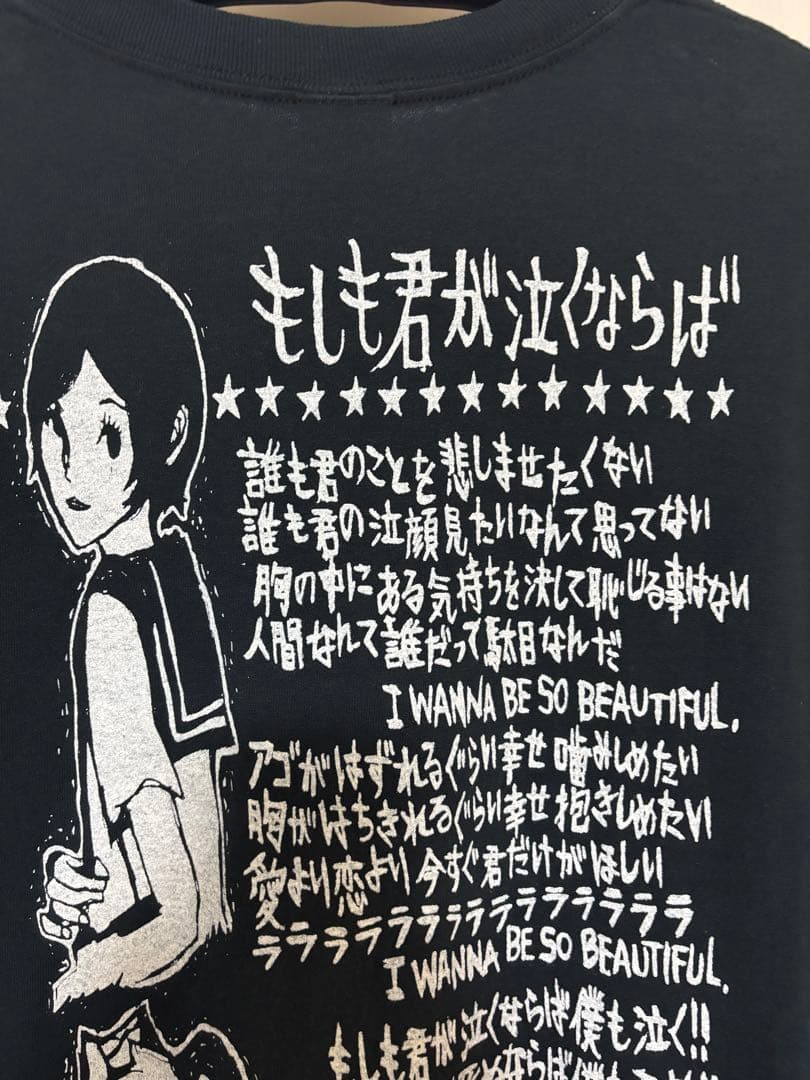 もしも君が泣くならば
★★★★★★★★★★★★
誰も君のことを悲しませたくない
誰も君の泣顔見たいなんて思ってない
胸の中にある気持ちを決して恥じる事はない
人間なんて誰だって駄目なんだ
I WANNA BE SO BEAUTIFUL.
アゴがはずれるぐらい幸せ噛みしめたい
胸がはちきれるぐらい幸せ抱きしめたい
愛より恋より今すぐ君だけがほしい
ララララララララララララララ
I WANNA BE SO BEAUTIFUL.
もしも君が泣くならば僕も泣く!!
ならば僕も